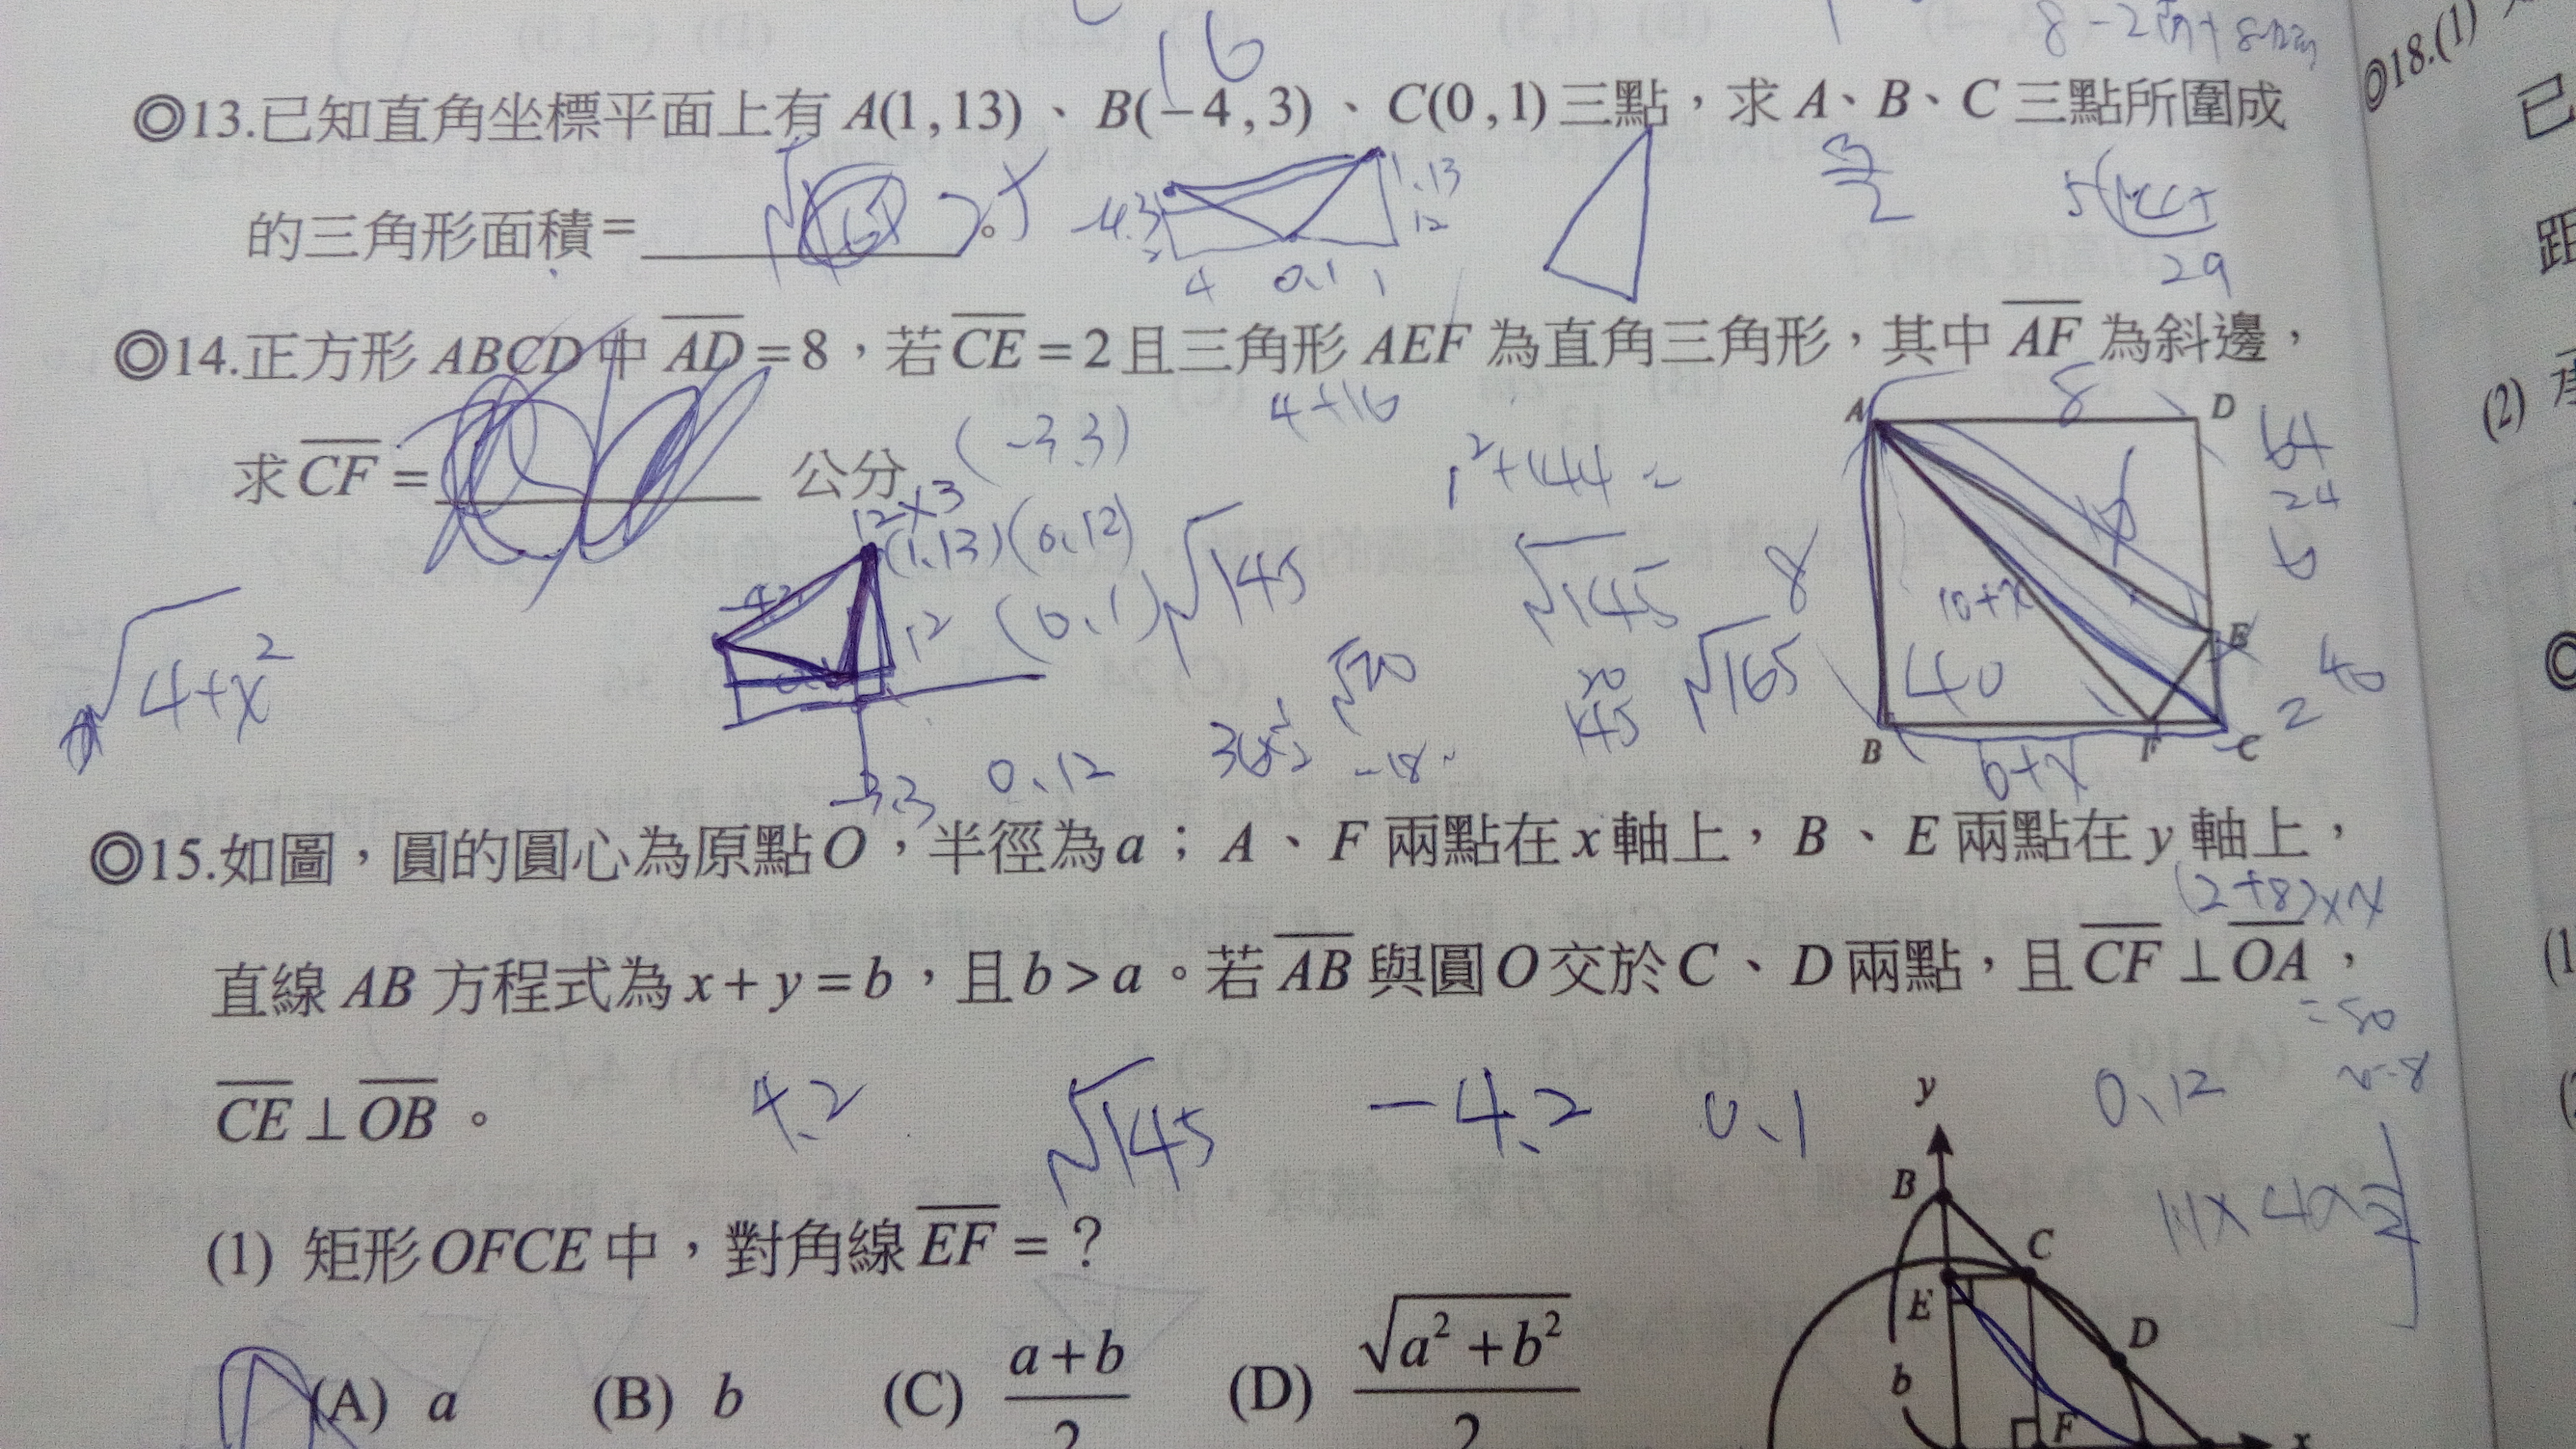 16
◎13.已知直角坐標平面上有 A(1,13)、B(−4,3)、C(0,1)三點,求 A、B、C 三點所圍成
的三角形面積=＿＿＿＿。
1.13
12
4 0.1 1
29
◎14.正方形 ABCD 中 AD=8,若 CE=2 且三角形 AEF 為直角三角形,其中 AF 為斜邊,
求 CF=＿＿＿＿ 公分
(-3.3)
4+16
1²+144=
A 8 D
64
24
6
12×3
(1.13)(0.12)
√145
√145
8
10+x
E
√4+x²
1²
(0.1)
√20
20
145
√165
40
40
2
B F C
6+x
-3.3
0.12
◎15.如圖,圓的圓心為原點O,半徑為a;A、F 兩點在 x 軸上,B、E 兩點在 y 軸上,
(2+8)×x
直線 AB 方程式為 x+y=b,且b>a。若 AB 與圓O交於C、D兩點,且 CF⊥OA,
=50
CE⊥OB。
4.2
√145
-4.2
0.1
0.12
y
B
C
E
D
b
F
x
(1) 矩形OFCE中,對角線 EF=?
(A) a (B) b (C) (a+b)/2 (D) √(a²+b²)/2
◎18.(1)
已
距
(2)